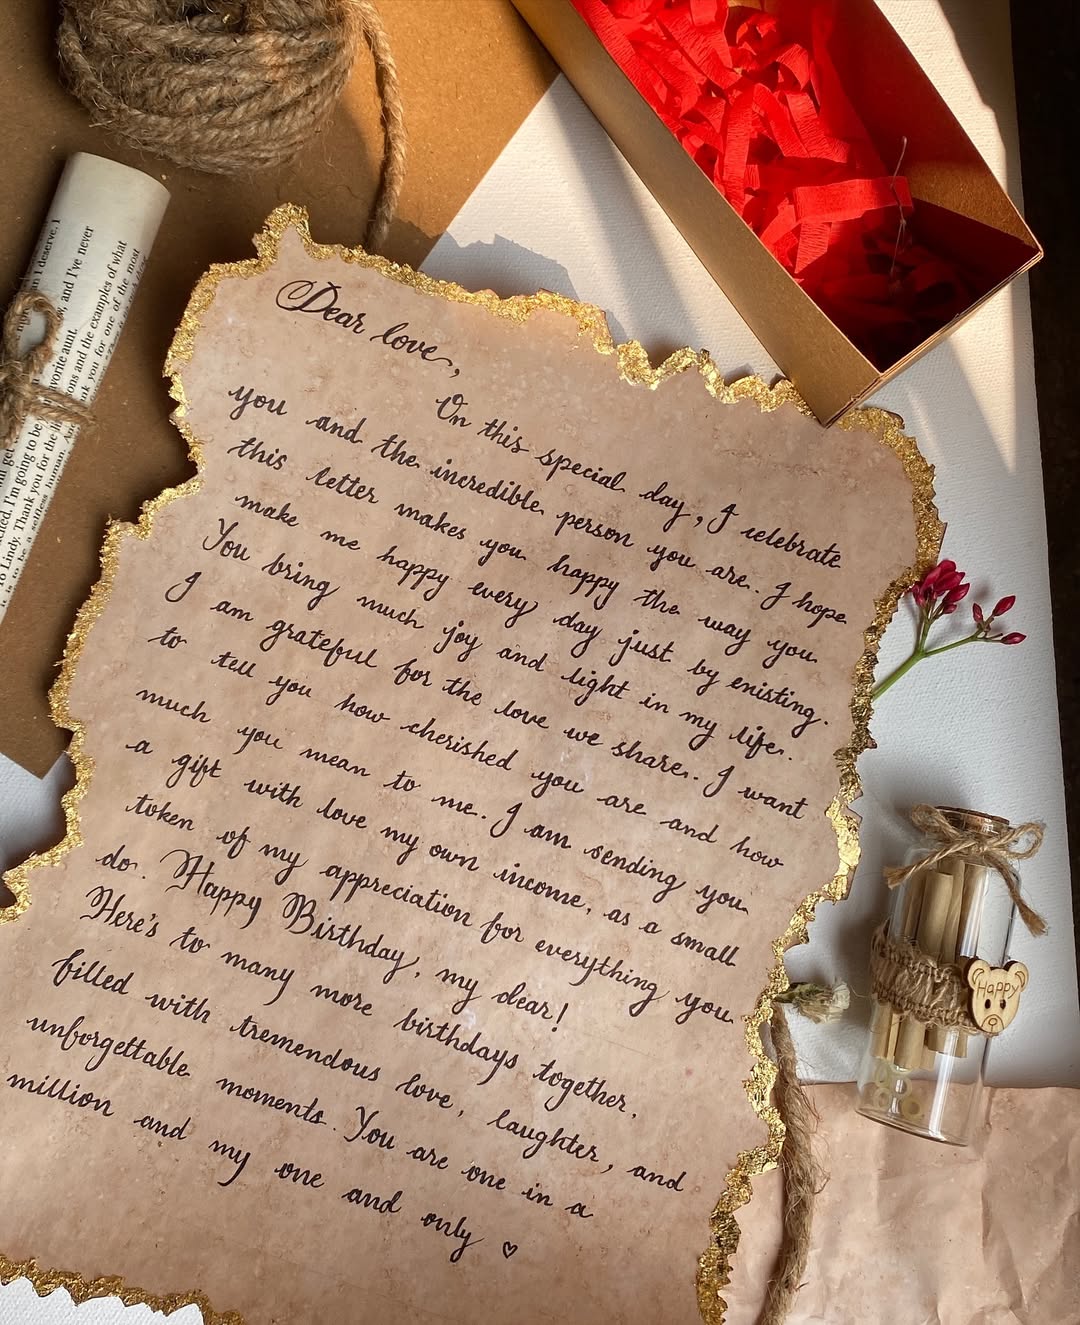 Dear love,
On this special day, I celebrate
you and the incredible person you are. I hope
this letter makes you happy the way you
make me happy every day just by enisting.
You bring much joy and light in my life.
I am grateful for the love we share. I want
to tell you how cherished you are and how
much you mean to me. I am sending you
a gift with love my own income, as a small
token of my appreciation for everything you
do. Happy Birthday, my dear!
Here's to many more birthdays together,
filled with tremendous love, laughter, and
unforgettable moments. You are one in a
million and my one and only ♡
an I deserve. I
and I've never
favorite aunt.
and the examples of what
you for one of the most
I'm going to be
To Lindy. Thank you for the
be a selfless human.
Happy